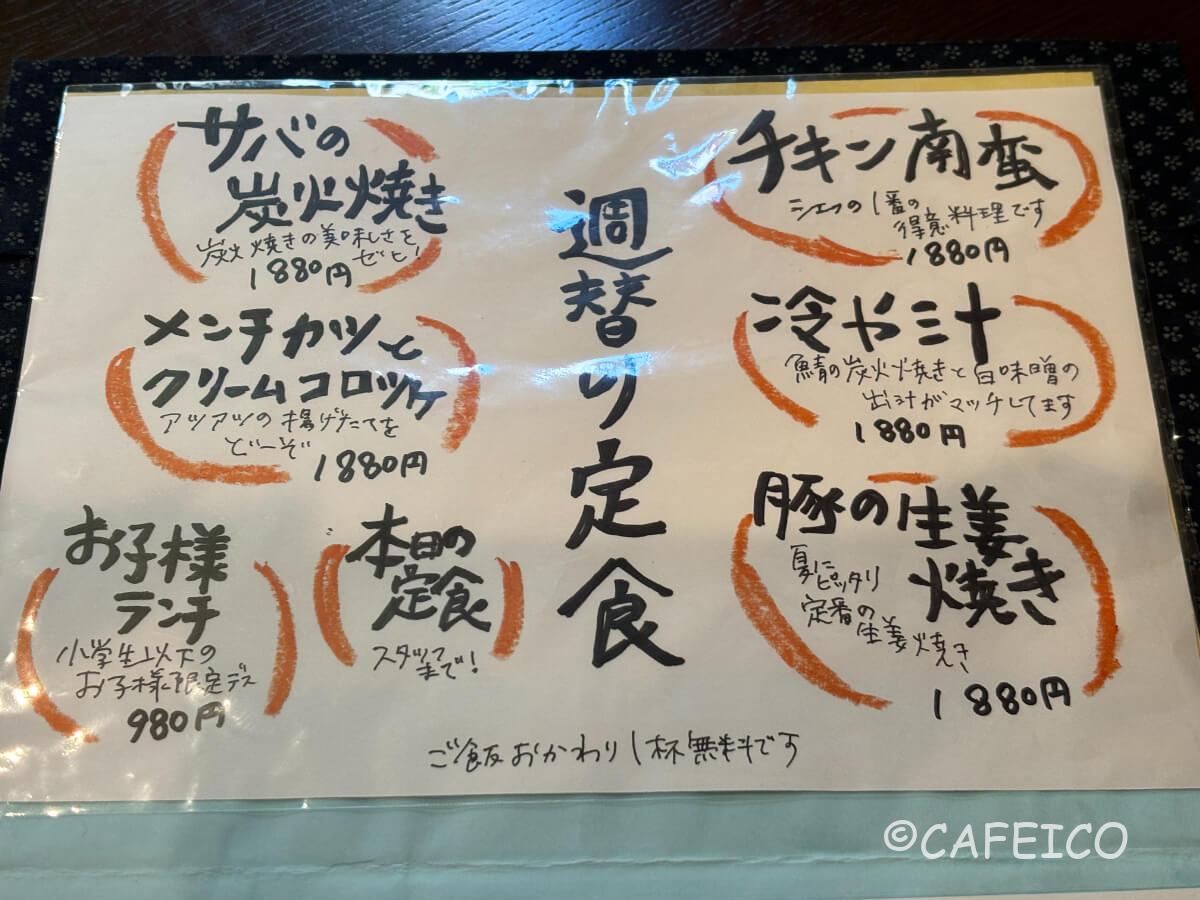 週替りの定食
チキン南蛮
シェフの1番の
得意料理です
1880円
冷や三汁
鯖の炭火焼きと白味噌の
出汁がマッチしてます
1880円
豚の生姜
焼き
夏に
ピッタリ
定番の
生姜焼き
1880円
サバの
炭火焼き
炭火焼きの美味しさを
ぜひ!
1880円
メンチカツと
クリームコロッケ
アツアツの揚げたてを
どーぞ
1880円
本日の
定食
スタッフ
まで!
お子様
ランチ
小学生以下の
お子様限定デス
980円
ご飯おかわり1杯無料です
©CAFEICO